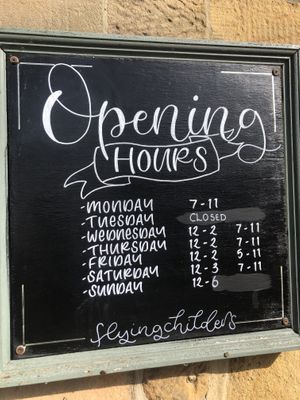 Opening
HOURS
-MONDAY 7-11
-TUESDAY CLOSED
-WEDNESDAY 12-2 7-11
-THURSDAY 12-2 7-11
-FRIDAY 12-2 5-11
-SATURDAY 12-3 7-11
-SUNDAY 12-6
flyingchilders